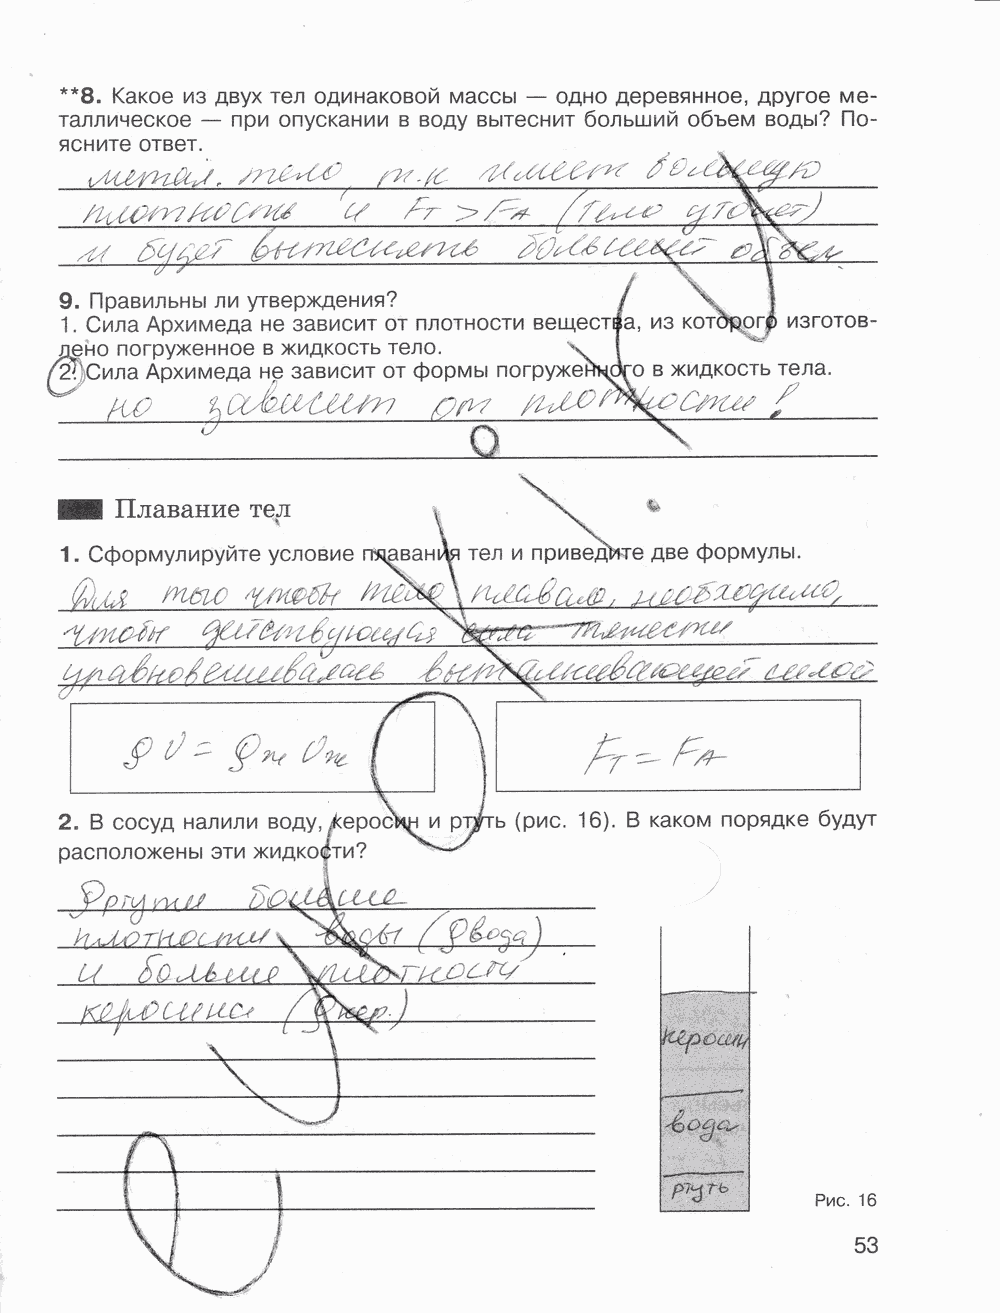 **8. Какое из двух тел одинаковой массы — одно деревянное, другое ме-
таллическое — при опускании в воду вытеснит больший объем воды? По-
ясните ответ.
метал. тело, т.к имеет большую
плотность и Fт > FА (тело утонет)
и будет вытеснять больший объем.
9. Правильны ли утверждения?
1. Сила Архимеда не зависит от плотности вещества, из которого изготов-
лено погруженное в жидкость тело.
2. Сила Архимеда не зависит от формы погруженного в жидкость тела.
но зависит от плотности!
Плавание тел
1. Сформулируйте условие плавания тел и приведите две формулы.
Для того чтобы тело плавало, необходимо,
чтобы действующая сила тяжести
уравновешивалась выталкивающей силой
ρ V = ρж Vж
Fт = FА
2. В сосуд налили воду, керосин и ртуть (рис. 16). В каком порядке будут
расположены эти жидкости?
ρртути больше
плотности воды (ρвода)
и больше плотности
керосина (ρкер.)
керосин
вода
ртуть
Рис. 16
53